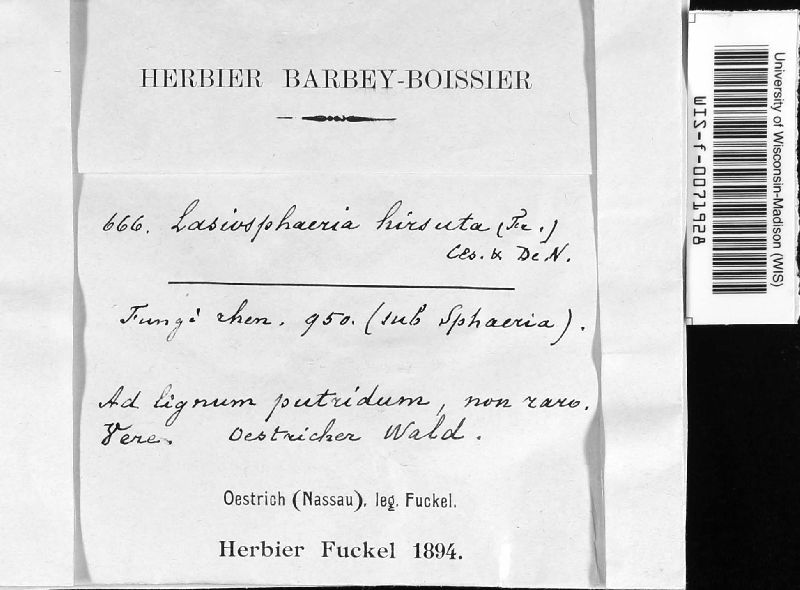 HERBIER BARBEY-BOISSIER
666. Lasiosphaeria hirsuta (Fr.)
Ces. & De N.
Fungi rhen. 950. (sub Sphaeria).
Ad lignum putridum, non raro.
Vere. Oestricher Wald.
Oestrich (Nassau), leg. Fuckel.
Herbier Fuckel 1894.
University of Wisconsin-Madison (WIS)
WIS-f-0071928